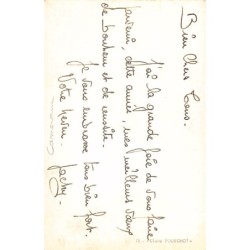 Bien Chers Tous.
J'ai la grande joie de vous faire
parvenir, cette année, mes meilleurs vœux
de bonheur et de réussite.
Je vous embrasse tous bien fort.
Votre
Jacky.